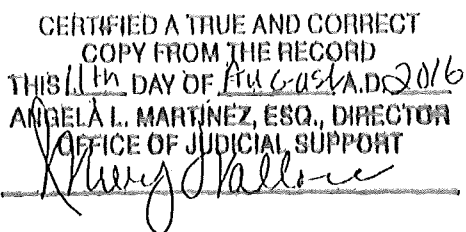 CERTIFIED A TRUE AND CORRECT
COPY FROM THE RECORD
THIS 11th DAY OF August A.D. 2016
ANGELA L. MARTINEZ, ESQ., DIRECTOR
OFFICE OF JUDICIAL SUPPORT
Wallace